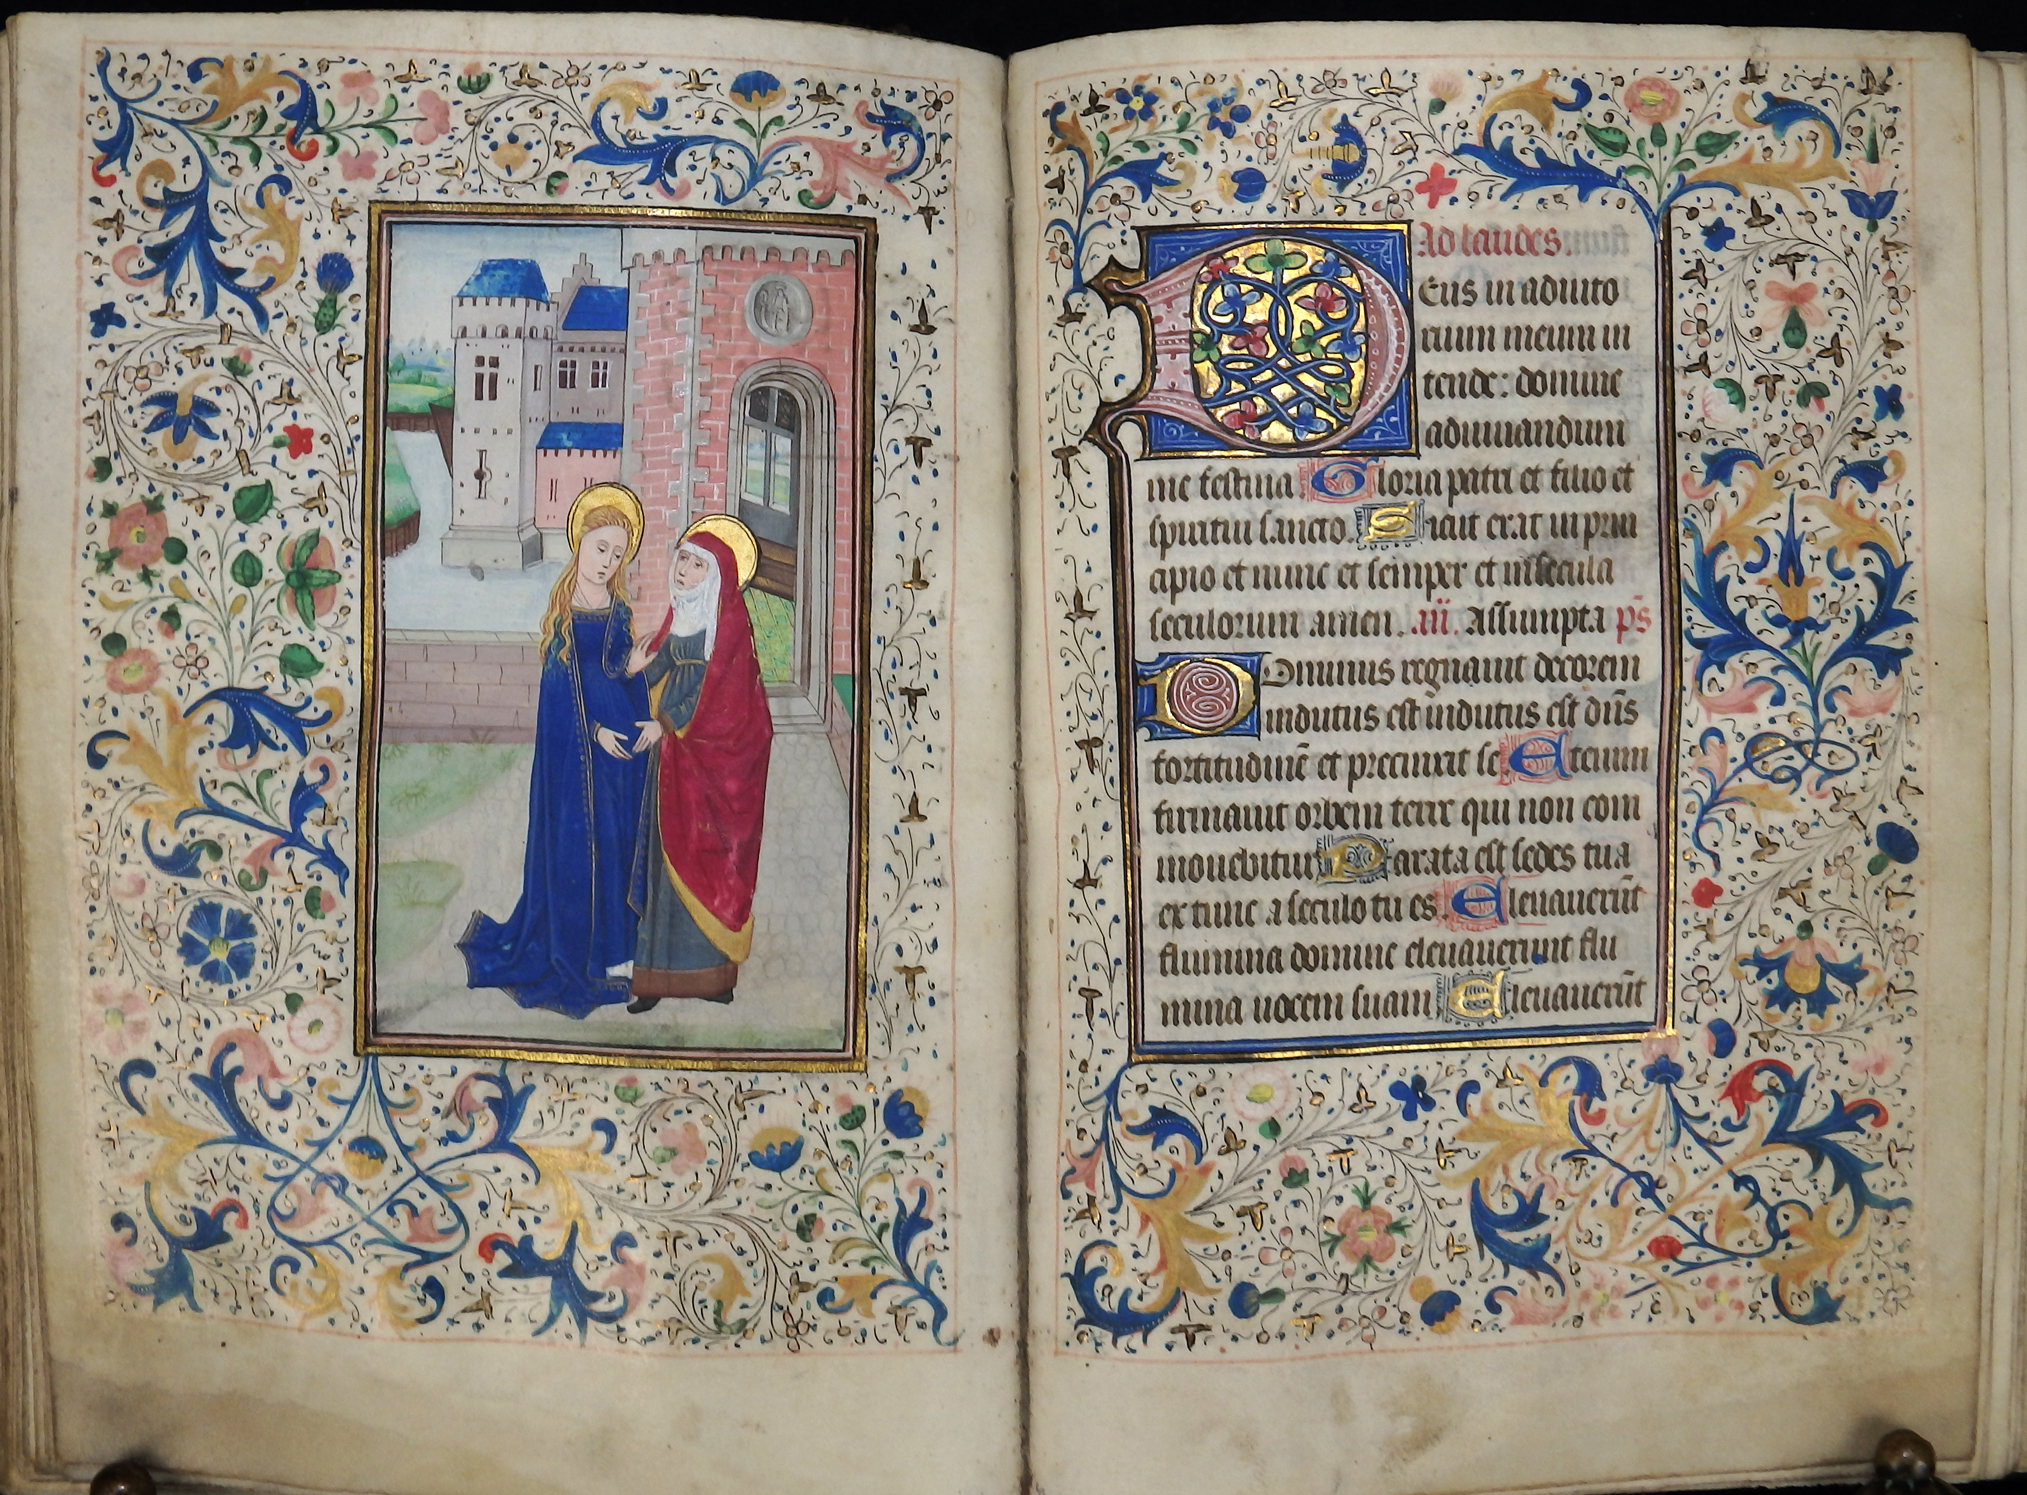 Ad laudes.
Deus in adiuto
rium meum in
tende: domine
adiuuandum
me festina Gloria patri et filio et
spiritui sancto. Sicut erat in prin
cipio et nunc et semper et in secula
seculorum amen. an. Assumpta p̄s
Dominus regnauit decorem
indutus est indutus est dn̄s
fortitudinē et precinxit se Etenim
firmauit orbem terre qui non com
mouebitur Parata est sedes tua
ex tunc a seculo tu es. Eleuauerūt
flumina domine eleuauerunt flu
mina uocem suam Eleuauerūt